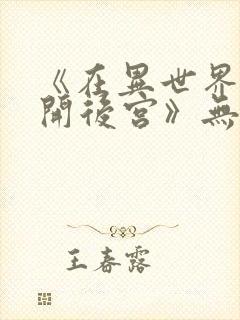 《在異世界
開後宮》無
王春露